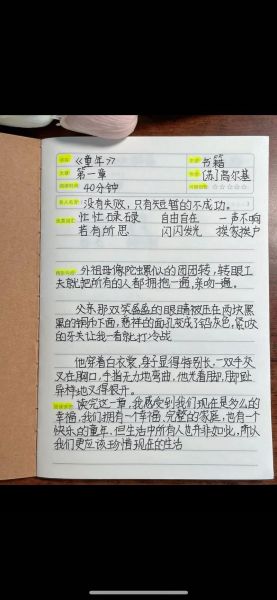 《童年》 书籍
第一章 [苏]高尔基
阅读时间: 40分钟 ☆☆☆☆☆
没有失败，只有短暂的不成功。
忙忙碌碌 自由自在 一声不响
若有所思 闪闪发光 挨家挨户
外祖母像陀螺似的团团转，转眼工
夫就把所有的人都拥抱一遍，亲吻一遍。
父亲那双笑盈盈的眼睛被压在两块黑
黑的铜币下面，慈祥的面孔变成了铅灰色，紧咬
的牙关让我一看就打冷战
他穿着白衣裳，身子显得特别长，一双手交
叉在胸口，手指无力地弯曲，他光着脚，脚趾
异样地叉得很开。
读完这一章，我感受到我们现在是多么的
幸福，我们拥有一个幸福、完整的家庭，也有一个
快乐的童年，但生活中所有人也并非如此，所以
我们更应该珍惜现在的生活